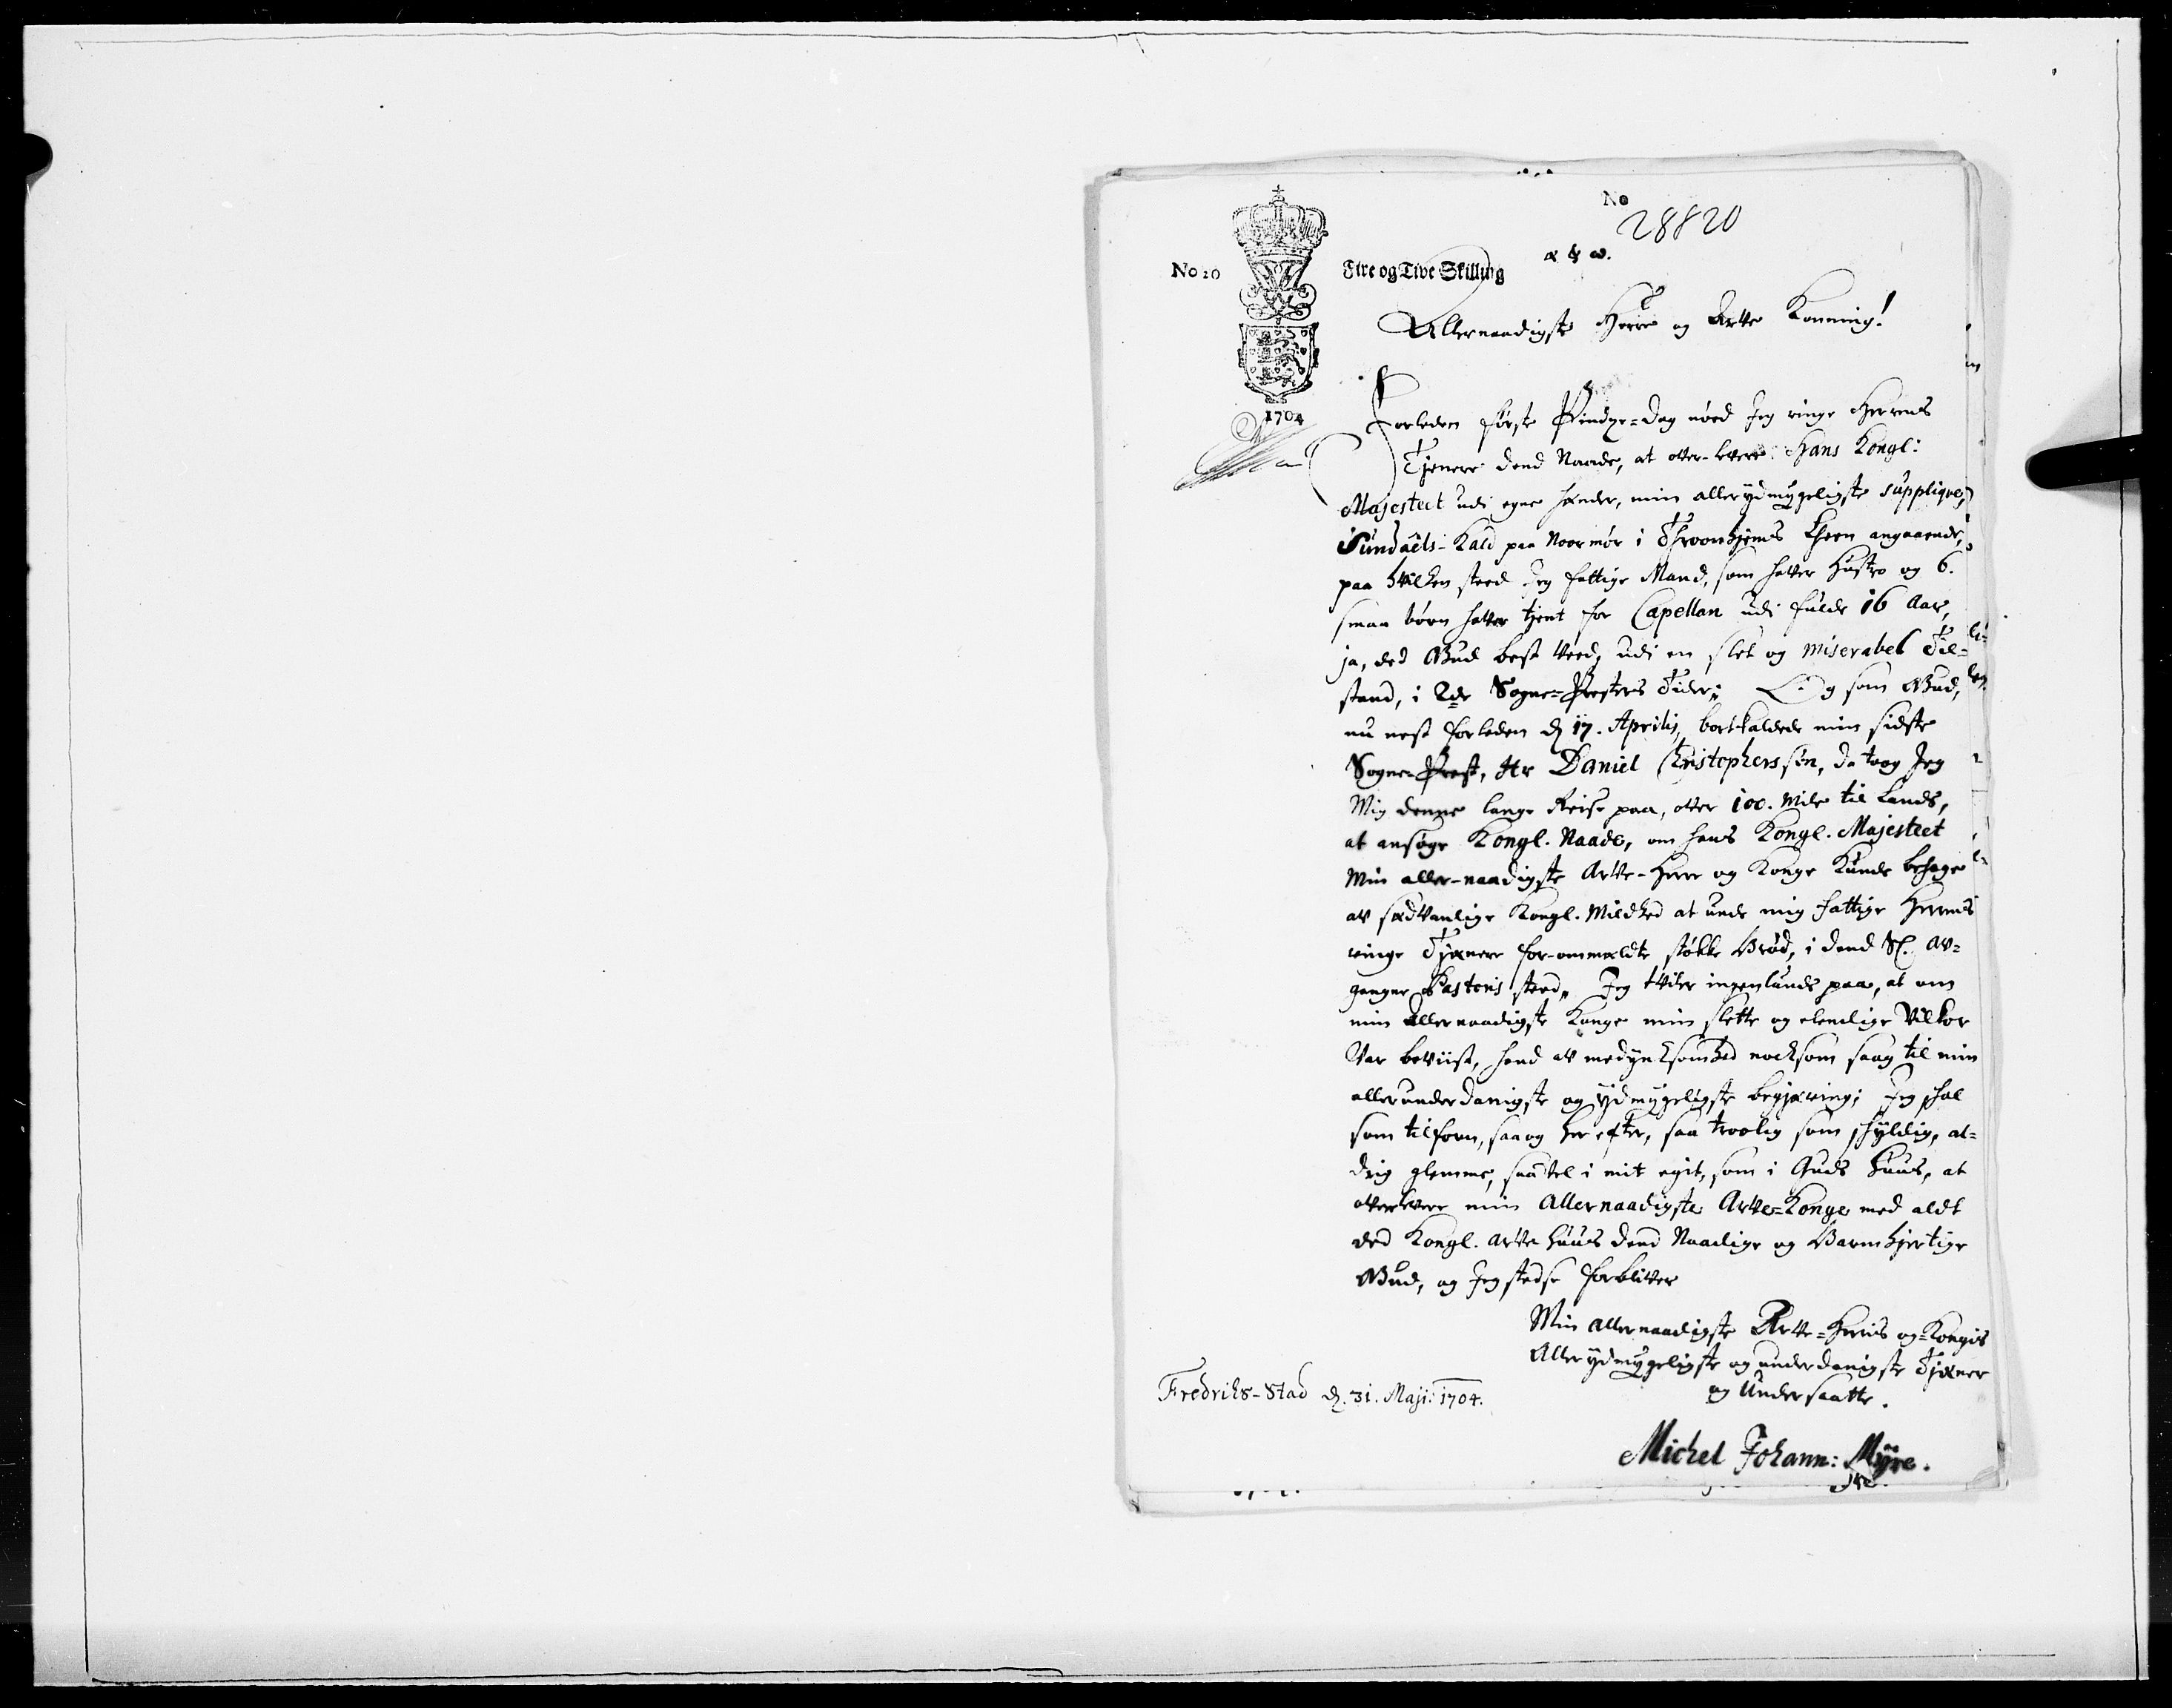 No
28820
α & ω.
No 20 Fire og Tive Skilling
1704
Allernaadigste Herre og Arve Konning!
Forleden første Pindze-Dag nöed Jeg ringe Herrens
Tjenere dend Naade, at over-levere Hans Kongl:
Majestect udi egne hænder, min allerydmygeligste supplique,
Sundåels-Kald paa Noormør i Throonhjems Lheen angaaende,
paa hvilken sted Jeg fattige Mand, som haver Hustro og 6.
smaa børn haver tjent for Capellan udi fulde 16 Aar,
ja, ded Gud best veed, udi en slet og miserabel Til=
stand, i 2de Sogne-Presters Tider; Og som Gud,
nu nest forleden d 17. Aprilis, bortkaldede min sidste
Sogne-Prest, Hr Daniel Christopherssøn, da toog Jeg
Mig denne lange Reise paa, over 100. Mile til Lands,
at ansøge Kongl. Naade, om hans Kongl. Majesteet
Min aller-naadigste Arve-Herre og Konge Kunde behage
av sædvanlige Kongl. Mildhed at unde mig fattige Herrens
ringe Tjænere for-ommældte støkke Brød, i dend Sl. av=
gangne Pastoris steed, Jeg tviler ingenlunds paa, at om
min Allernaadigste Konge min slette og elendige Vilkor
Var beviist, hand av medynksomhed nocksom saag til min
allerunderdanigste og ydmygeligste begjæring; Jeg skal
som tilforn, saa og her efter, saa troolig som skyldig, al=
drig glemme, saavel i mit eget, som i Guds Huus, at
overlevere min Allernaadigste Arve-Konge med aldt
ded Kongl. Arve Huus dend Naadige og Barmhjertige
Gud, og Jeg stedse forbliver
Min allernaadigste Arve=Herris og=Kongis
Allerydmygeligste og underdanigste Tjæner
og Undersaatte.
Fredrichs-Stad d. 31. Maji: 1704.
Michel Johann: Myre.